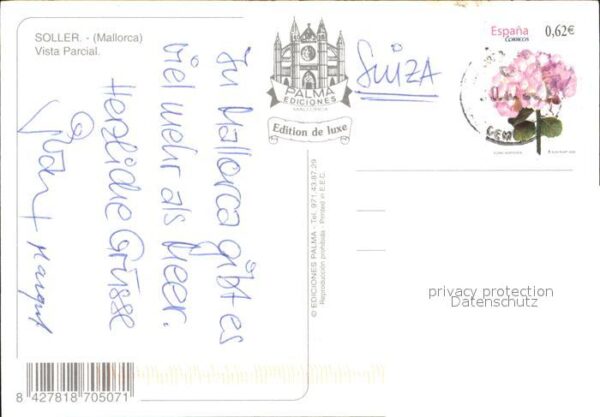 SOLLER. - (Mallorca)
Vista Parcial.
In Mallorca gibt es
viel mehr als Meer.
Herzliche Grüsse
+ Margrit
PALMA
EDICIONES
MALLORCA
Edition de luxe
© EDICIONES PALMA - Tel. 971 43.87.29
Reproducción prohibida - Printed in E.E.C.
SUIZA
España
CORREOS
0,62€
privacy protection
Datenschutz
8 427818 705071